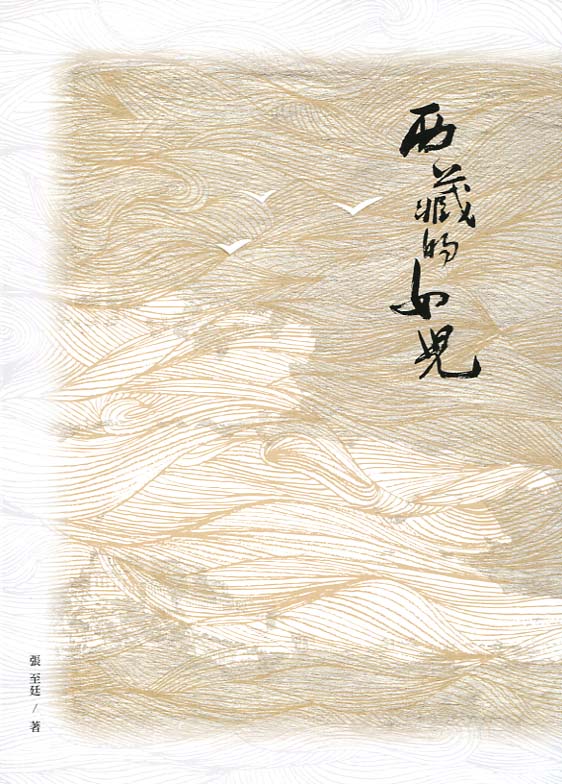 西藏的女兒
張至廷 / 著